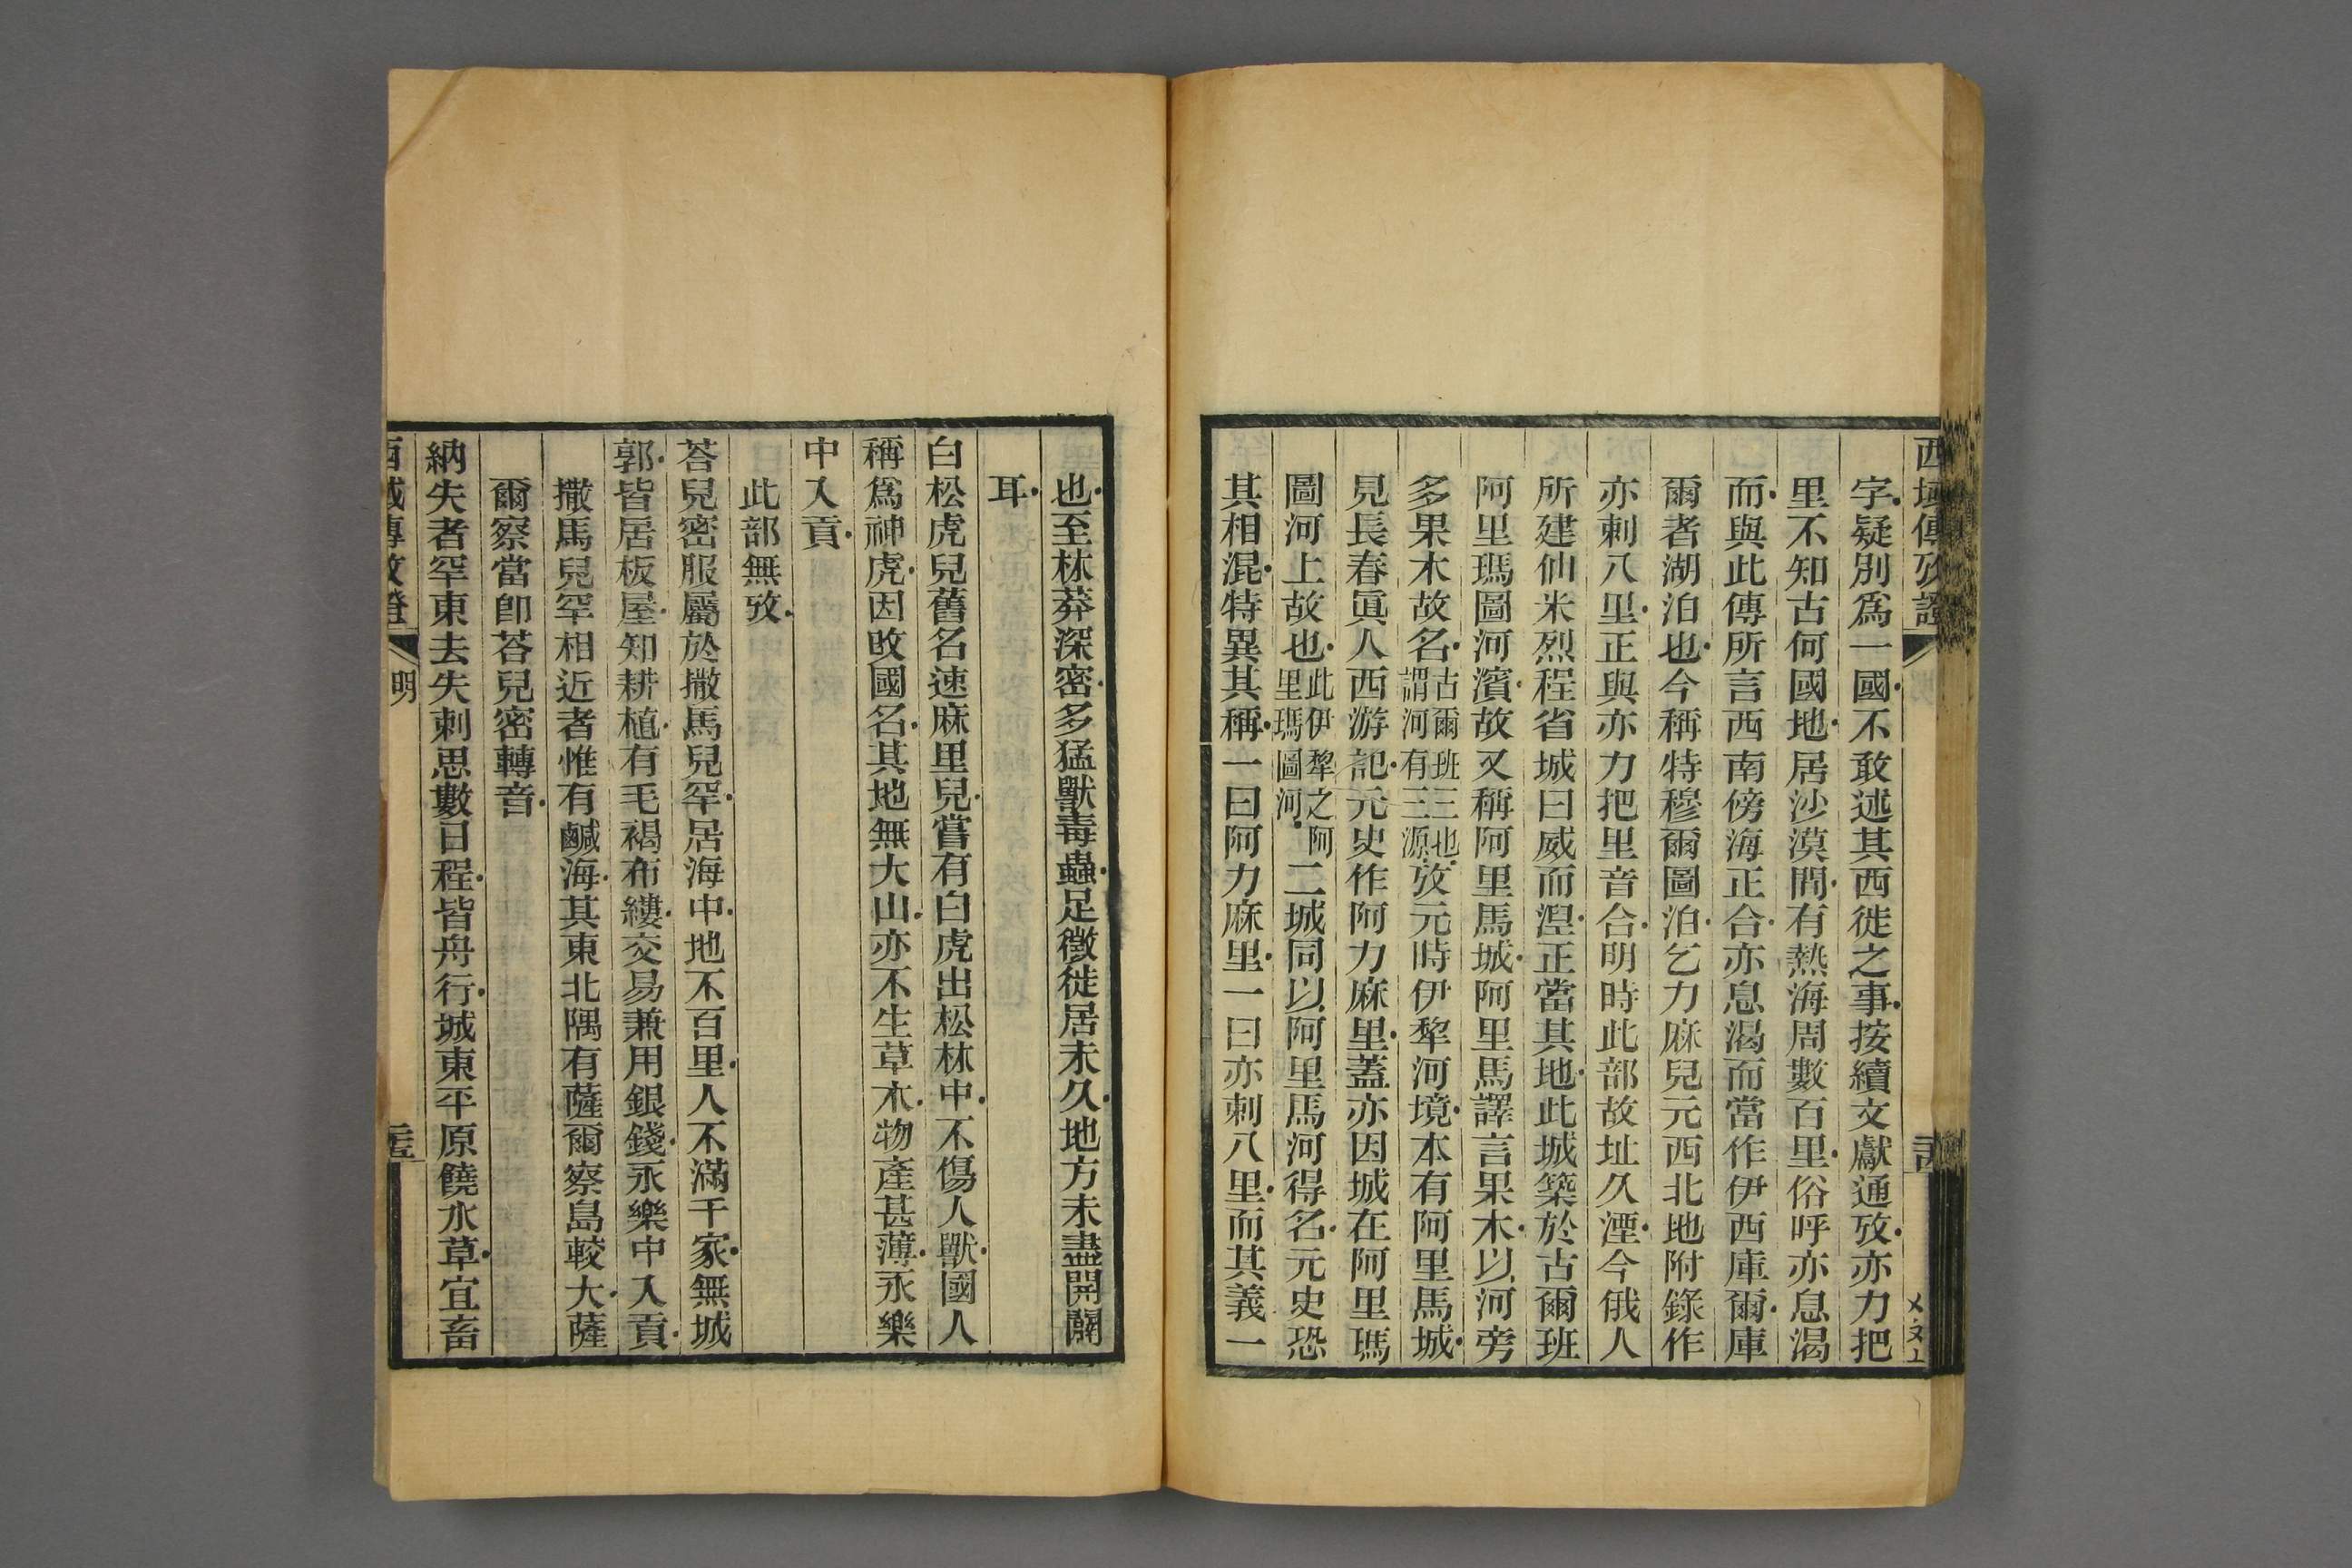 西域傳攷證
字疑別爲一國不敢述其西徙之事按續文獻通攷亦力把
里不知古何國地居沙漠間有熱海周數百里俗呼亦息渴
而與此傳所言西南傍海正合亦息渴而當作伊西庫爾庫
爾者湖泊也今稱特穆爾圖泊乞力麻兒元西北地附錄作
亦剌八里正與亦力把里音合明時此部故址久湮今俄人
所建仙米烈程省城曰威而湼正當其地此城築於古爾班
阿里瑪圖河濱故又稱阿里馬城阿里馬譯言果木以河旁
多果木故名古爾班三也謂河有三源攷元時伊犂河境本有阿里馬城
見長春眞人西游記元史作阿力麻里蓋亦因城在阿里瑪
圖河上故也此伊犂之阿里瑪圖河二城同以阿里馬河得名元史恐
其相混特異其稱一曰阿力麻里一曰亦剌八里而其義一
也至林莽深密多猛獸毒蟲足徵徙居未久地方未盡開闢
耳
白松虎兒舊名速麻里兒嘗有白虎出松林中不傷人獸國人
稱爲神虎因改國名其地無大山亦不生草木物產甚薄永樂
中入貢
此部無攷
荅兒密服屬於撒馬兒罕居海中地不百里人不滿千家無城
郭皆居板屋知耕植有毛褐布縷交易兼用銀錢永樂中入貢
撒馬兒罕相近者惟有鹹海其東北隅有薩爾察島較大薩
爾察當卽荅兒密轉音
納失者罕東去失剌思數日程皆舟行城東平原饒水草宜畜
西域傳攷證 明